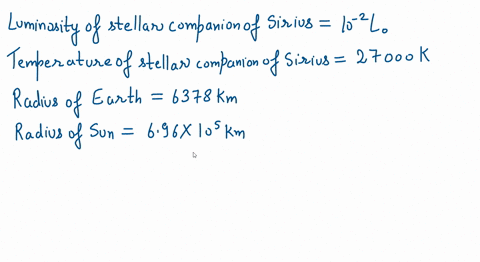 Luminosity of stellar companion of Sirius = 10⁻² L₀
Temperature of stellar companion of Sirius = 27000 K
Radius of Earth = 6378 Km
Radius of Sun = 6.96 X 10⁵ Km